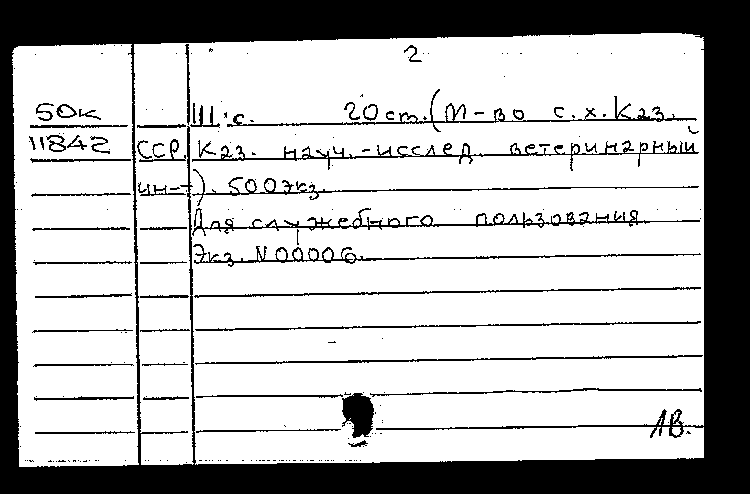 2
50к 111 с. 20 ст. (М-во с.х. Каз.
11842 ССР. Каз. науч.-исслед. ветеринарный
ин-т). 500 экз.
Для служебного пользования
Экз. N 00006.
1В.